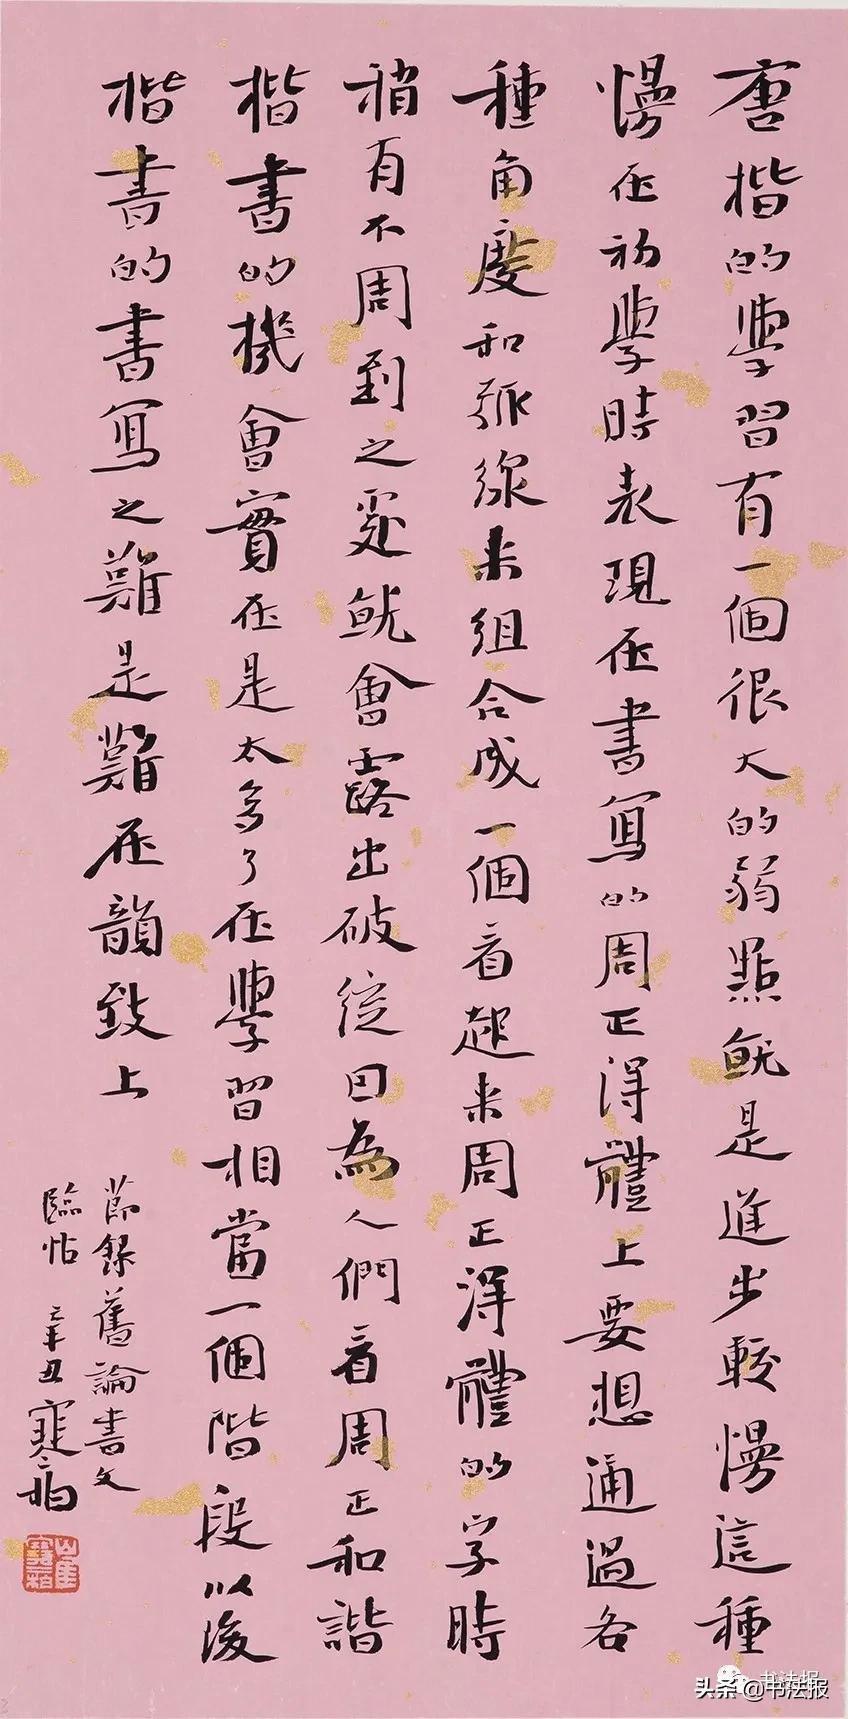 唐楷的學習有一個很大的弱點就是進步較慢這種
慢在初學時表現在書寫的周正得體上要想通過各
種角度和弧線来組合成一個看起来周正得體的字時
稍有不周到之處就會露出破綻因為人們看周正和諧
楷書的機會實在是太多了在學習相當一個階段以後
楷書的書寫之難是難在韻致上
節錄舊論書文
臨帖 辛丑寒柏
崔寒柏
书法报
头条@书法报